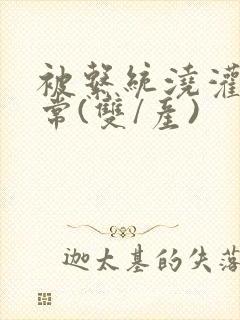 被繫統澆灌
常(雙/產)
迦太基的失落